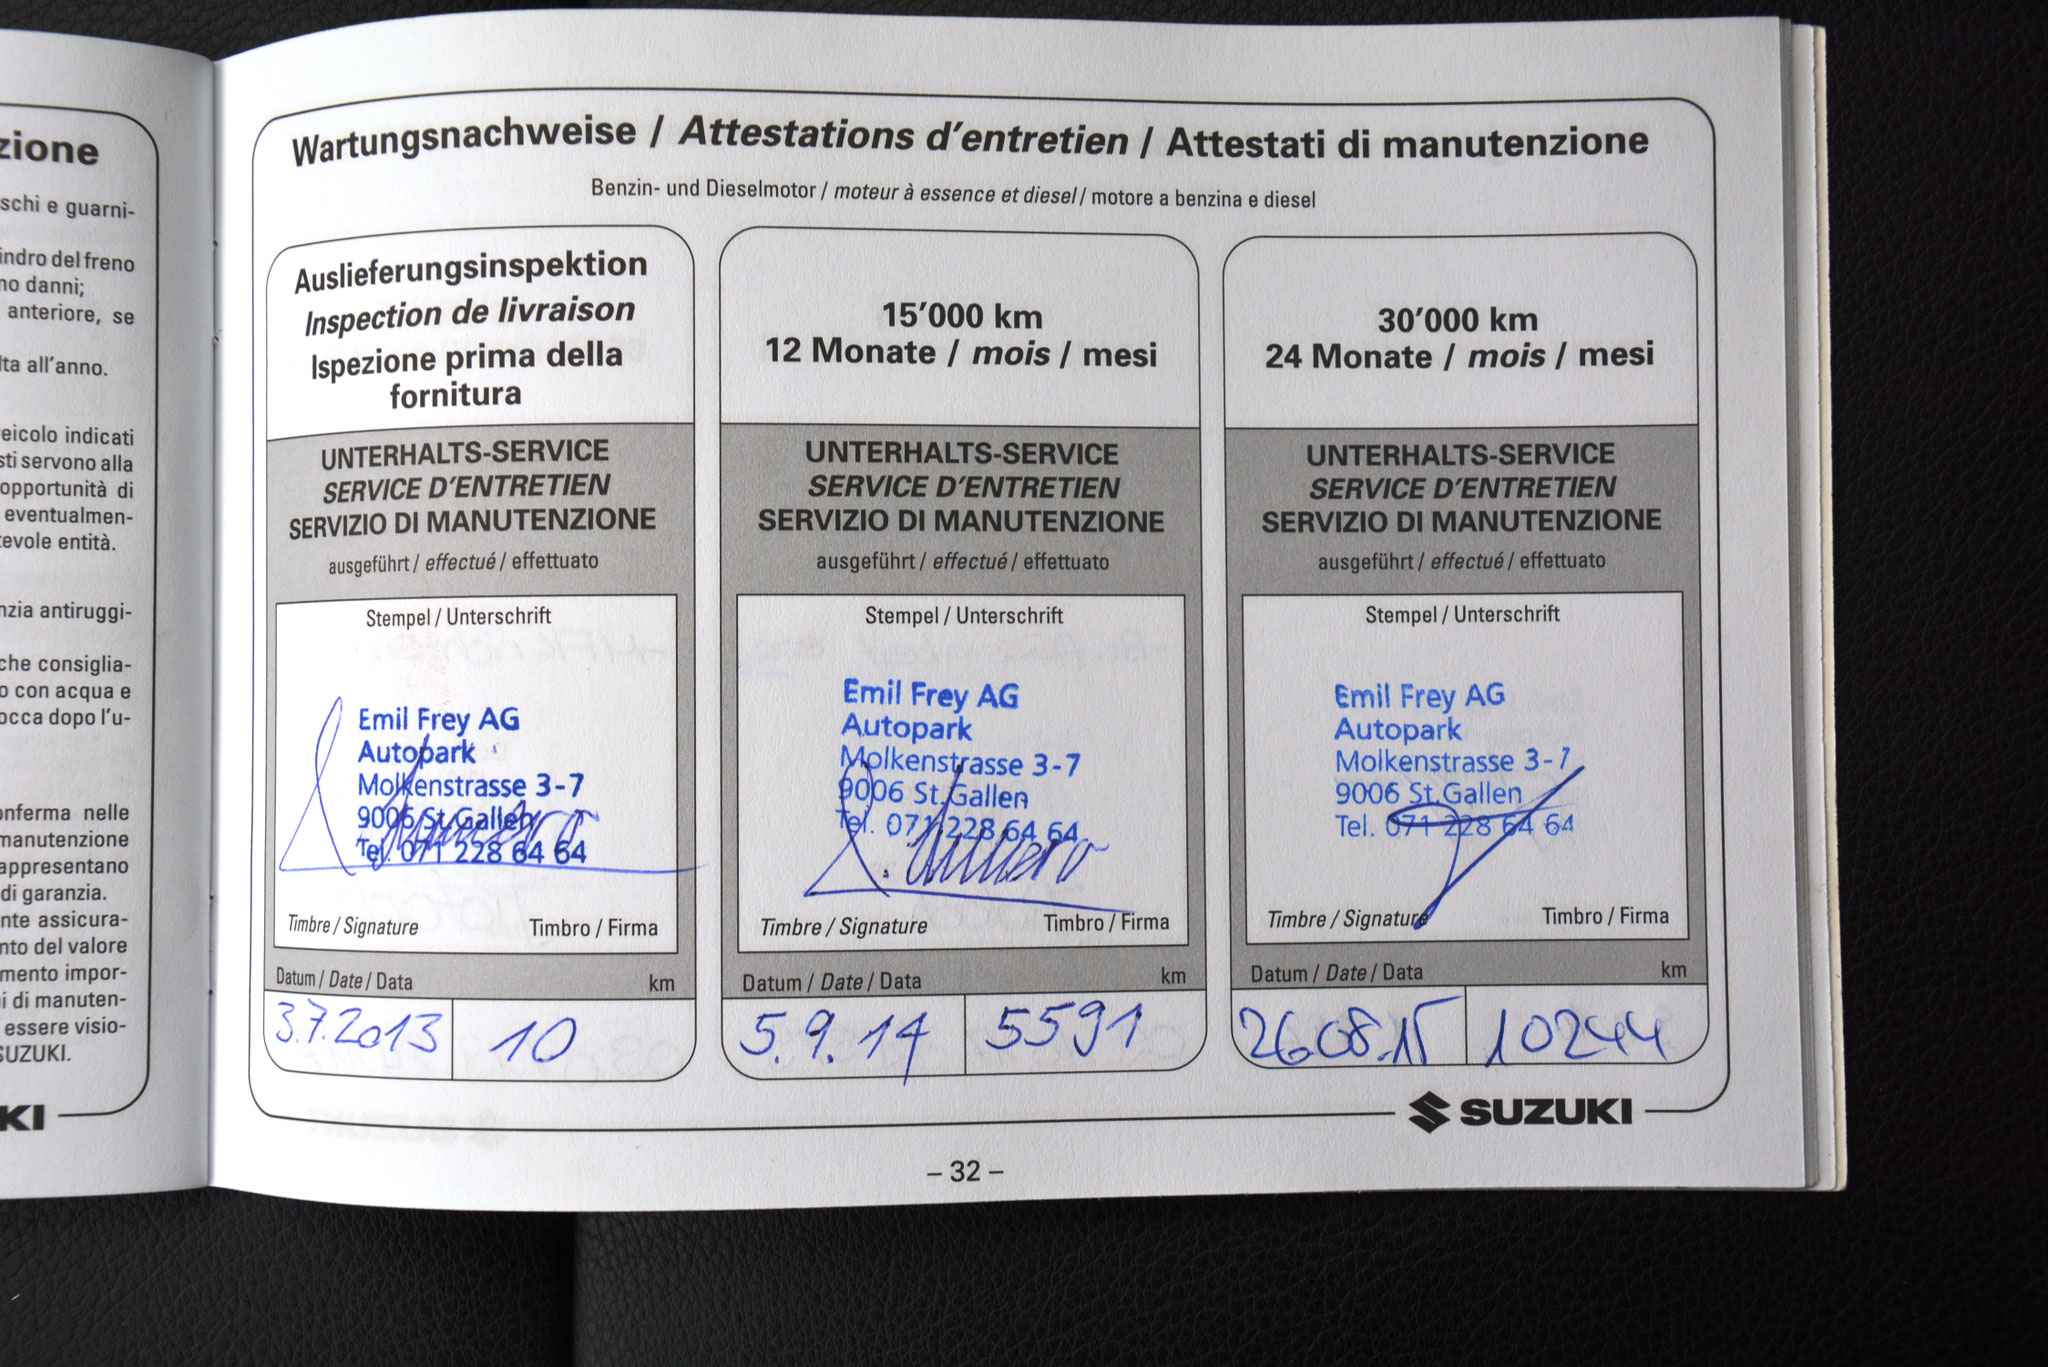 zione
schi e guarni-
indro del freno
no danni;
anteriore, se
lta all'anno.
eicolo indicati
sti servono alla
opportunità di
eventualmen-
tevole entità.
nzia antiruggi-
che consiglia-
o con acqua e
occa dopo l'u-
onferma nelle
manutenzione
appresentano
di garanzia.
nte assicura-
nto del valore
mento impor-
i di manuten-
essere visio-
SUZUKI.
KI
Wartungsnachweise / Attestations d'entretien / Attestati di manutenzione
Benzin- und Dieselmotor / moteur à essence et diesel / motore a benzina e diesel
Auslieferungsinspektion
Inspection de livraison
Ispezione prima della
fornitura
UNTERHALTS-SERVICE
SERVICE D'ENTRETIEN
SERVIZIO DI MANUTENZIONE
ausgeführt / effectué / effettuato
Stempel / Unterschrift
Emil Frey AG
Autopark
Molkenstrasse 3-7
9006 St.Gallen
Tel. 071 228 64 64
Timbre / Signature Timbro / Firma
Datum / Date / Data km
3.7.2013 10
15'000 km
12 Monate / mois / mesi
UNTERHALTS-SERVICE
SERVICE D'ENTRETIEN
SERVIZIO DI MANUTENZIONE
ausgeführt / effectué / effettuato
Stempel / Unterschrift
Emil Frey AG
Autopark
Molkenstrasse 3-7
9006 St.Gallen
Tel. 071 228 64 64
Timbre / Signature Timbro / Firma
Datum / Date / Data km
5.9.14 5591
30'000 km
24 Monate / mois / mesi
UNTERHALTS-SERVICE
SERVICE D'ENTRETIEN
SERVIZIO DI MANUTENZIONE
ausgeführt / effectué / effettuato
Stempel / Unterschrift
Emil Frey AG
Autopark
Molkenstrasse 3-7
9006 St.Gallen
Tel. 071 228 64 64
Timbre / Signature Timbro / Firma
Datum / Date / Data km
26.08.15 10244
SUZUKI
– 32 –